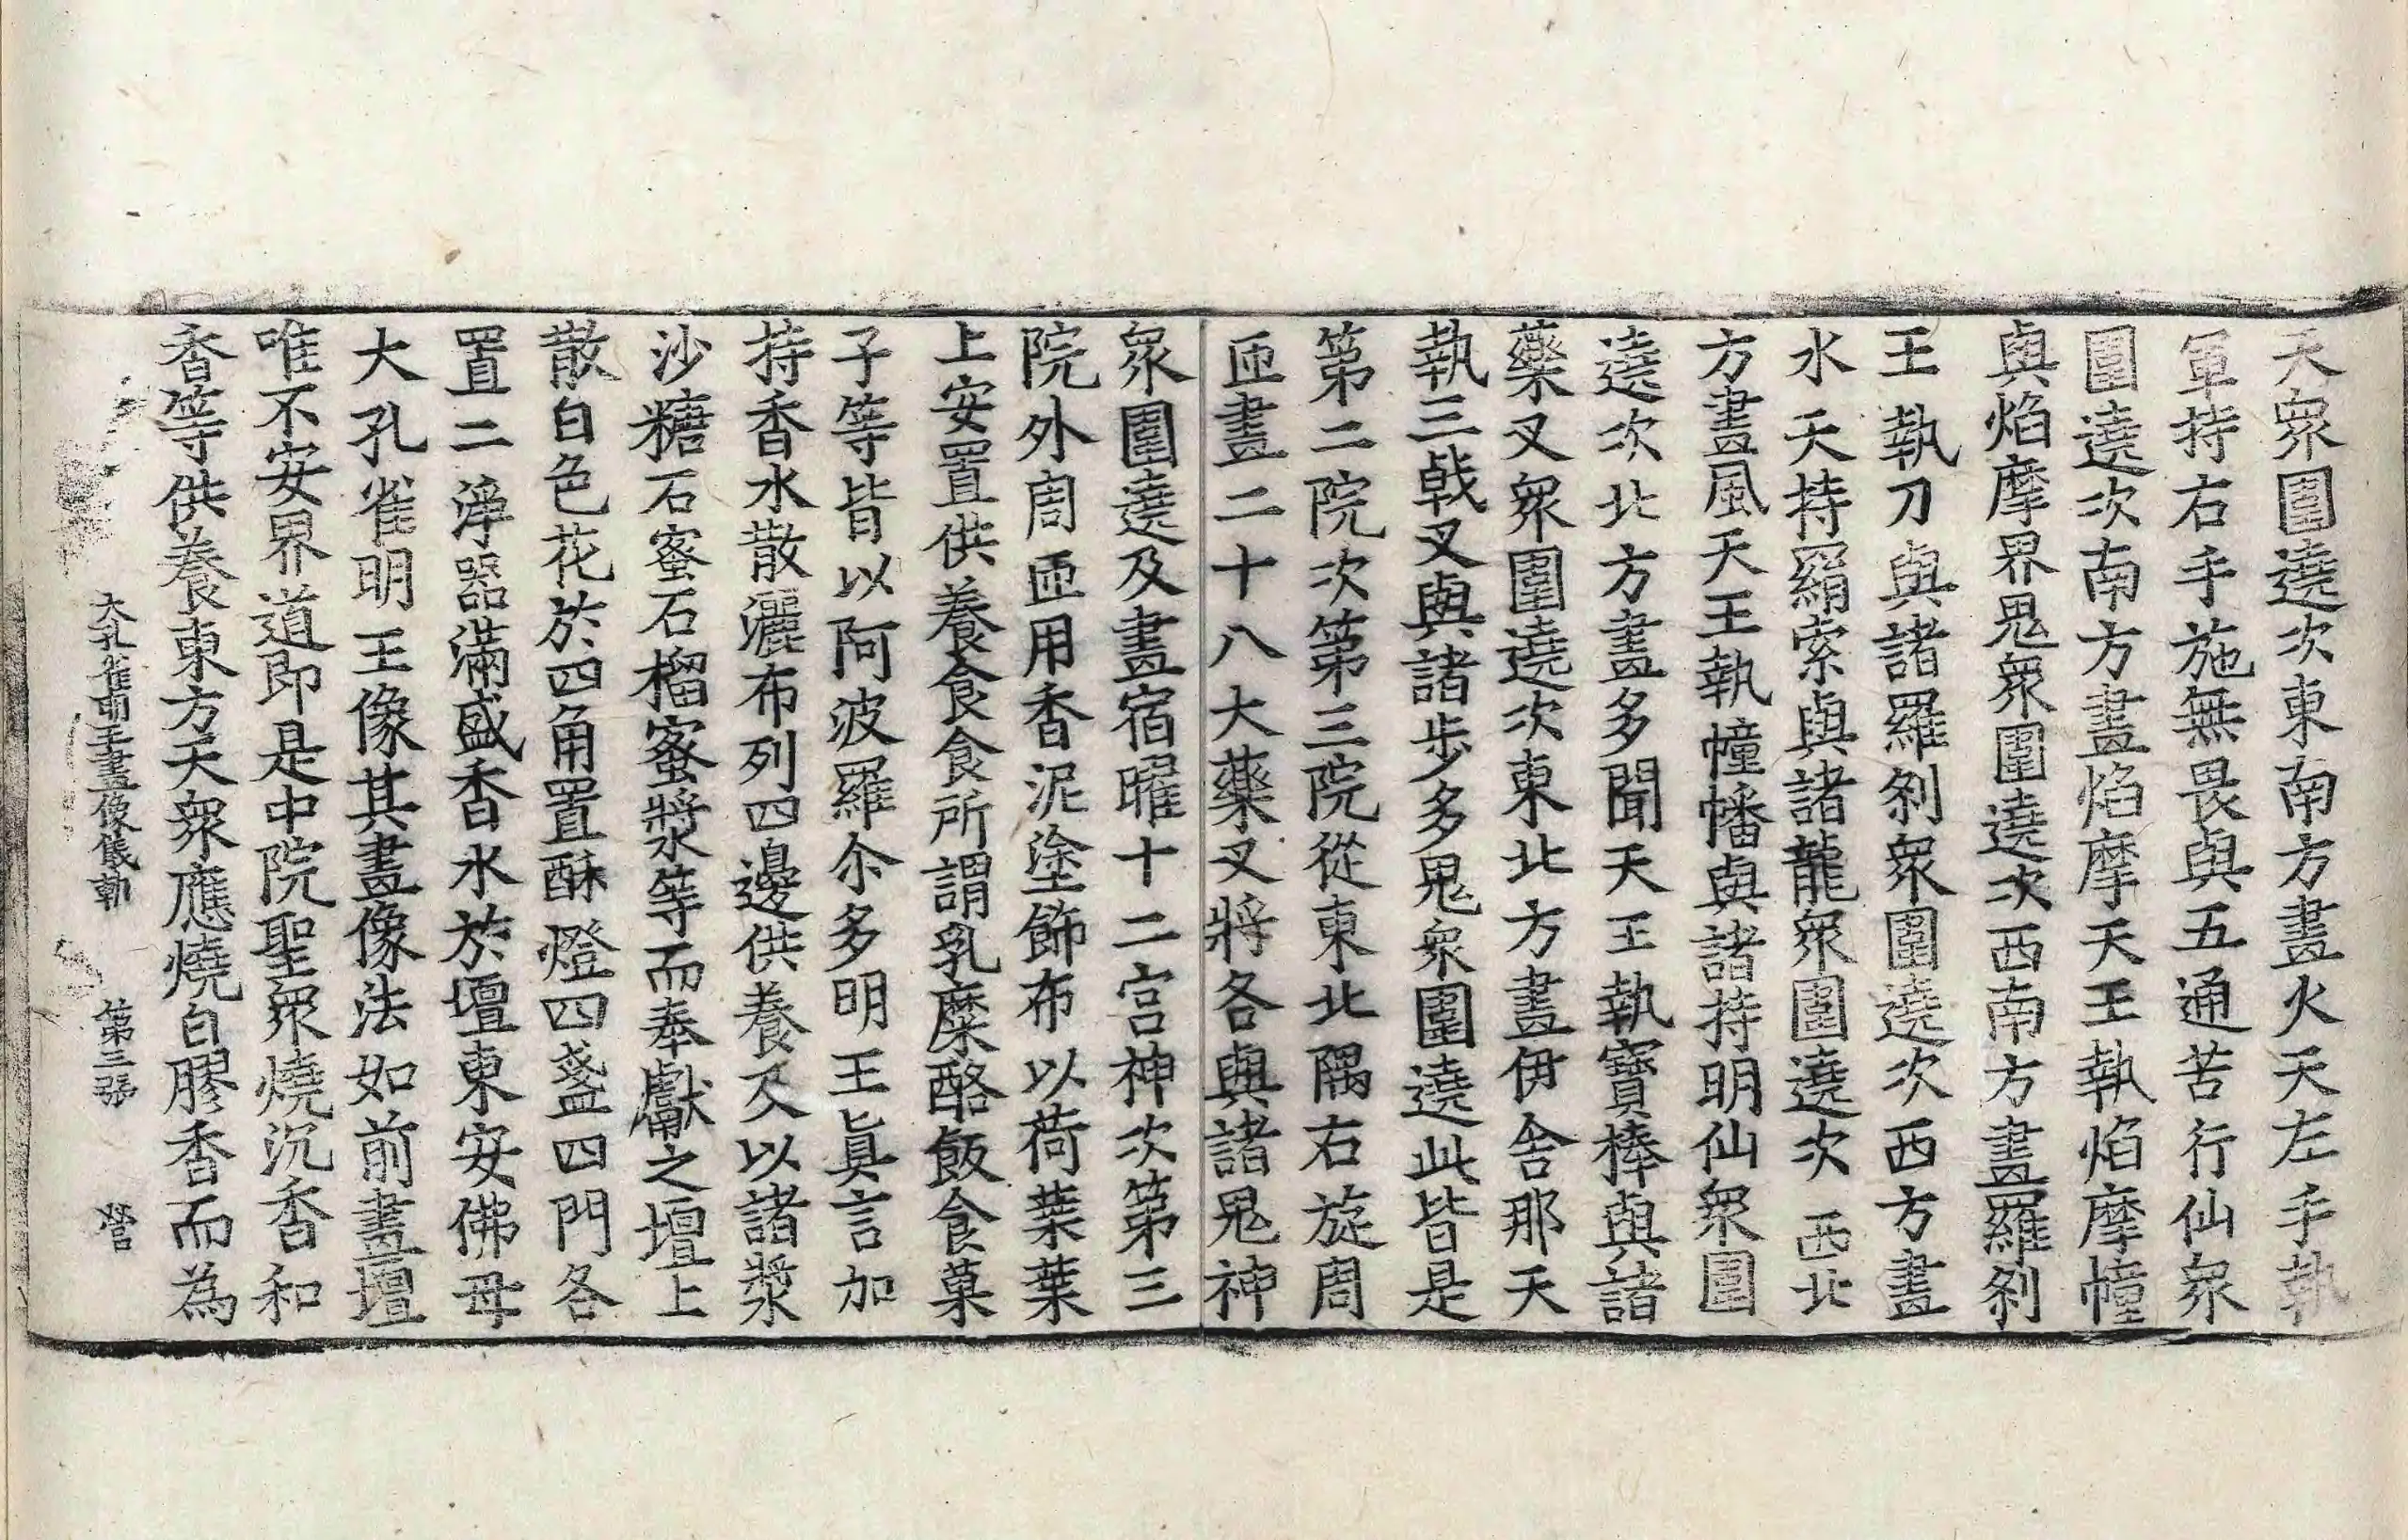 天衆圍遶次東南方畫火天左手執
軍持右手施無畏與五通苦行仙衆
圍遶次南方畫焰摩天王執焰摩幢
與焰摩界鬼衆圍遶次西南方畫羅剎
王執刀與諸羅剎衆圍遶次西方畫
水天持羂索與諸龍衆圍遶次西北
方畫風天王執幢幡與諸持明仙衆圍
遶次北方畫多聞天王執寶棒與諸
藥叉衆圍遶次東北方畫伊舍那天
執三戟叉與諸步多鬼衆圍遶此皆是
第二院次第三院從東北隅右旋周
匝畫二十八大藥叉將各與諸鬼神
衆圍遶及畫宿曜十二宮神次第三
院外周匝用香泥塗飾布以荷葉葉
上安置供養食食所謂乳糜酪飯食菓
子等皆以阿波羅尒多明王眞言加
持香水散灑布列四邊供養及以諸漿
沙糖石蜜石榴蜜漿等而奉獻之壇上
散白色花於四角置酥燈四盞四門各
置二淨器滿盛香水於壇東安佛母
大孔雀明王像其畫像法如前畫壇
唯不安界道即是中院聖衆燒沉香和
香等供養東方天衆應燒白膠香而為
大孔雀明王畫像儀軌 第三張 營